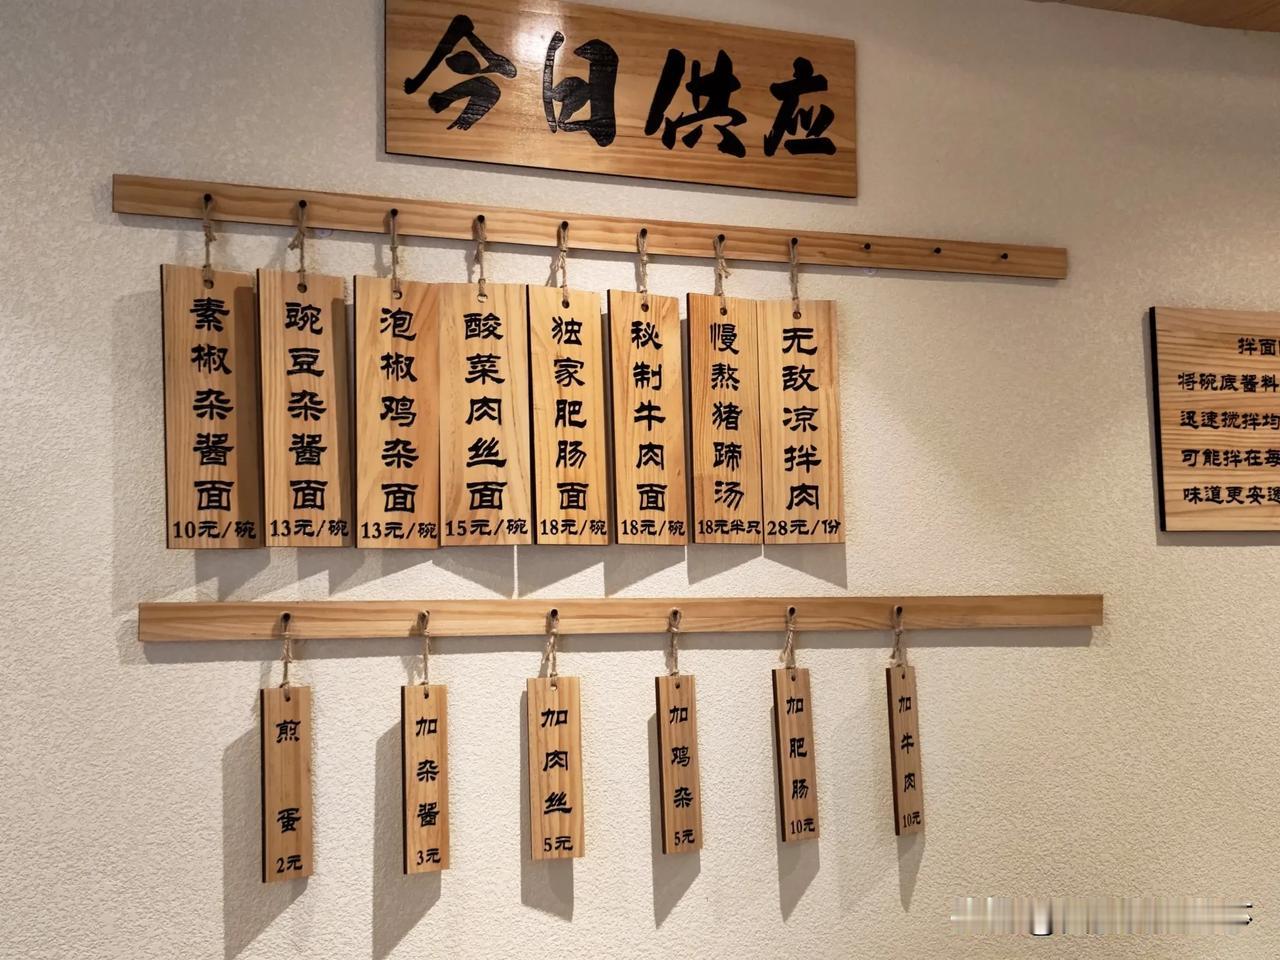 今日供应
素椒杂酱面
10元/碗
豌豆杂酱面
13元/碗
泡椒鸡杂面
13元/碗
酸菜肉丝面
15元/碗
独家肥肠面
18元/碗
秘制牛肉面
18元/碗
慢熬猪蹄汤
18元半只
无敌凉拌肉
28元/份
煎蛋
2元
加杂酱
3元
加肉丝
5元
加鸡杂
5元
加肥肠
10元
加牛肉
10元
拌面
将碗底酱料
迅速搅拌均
可能拌在每
味道更安逸